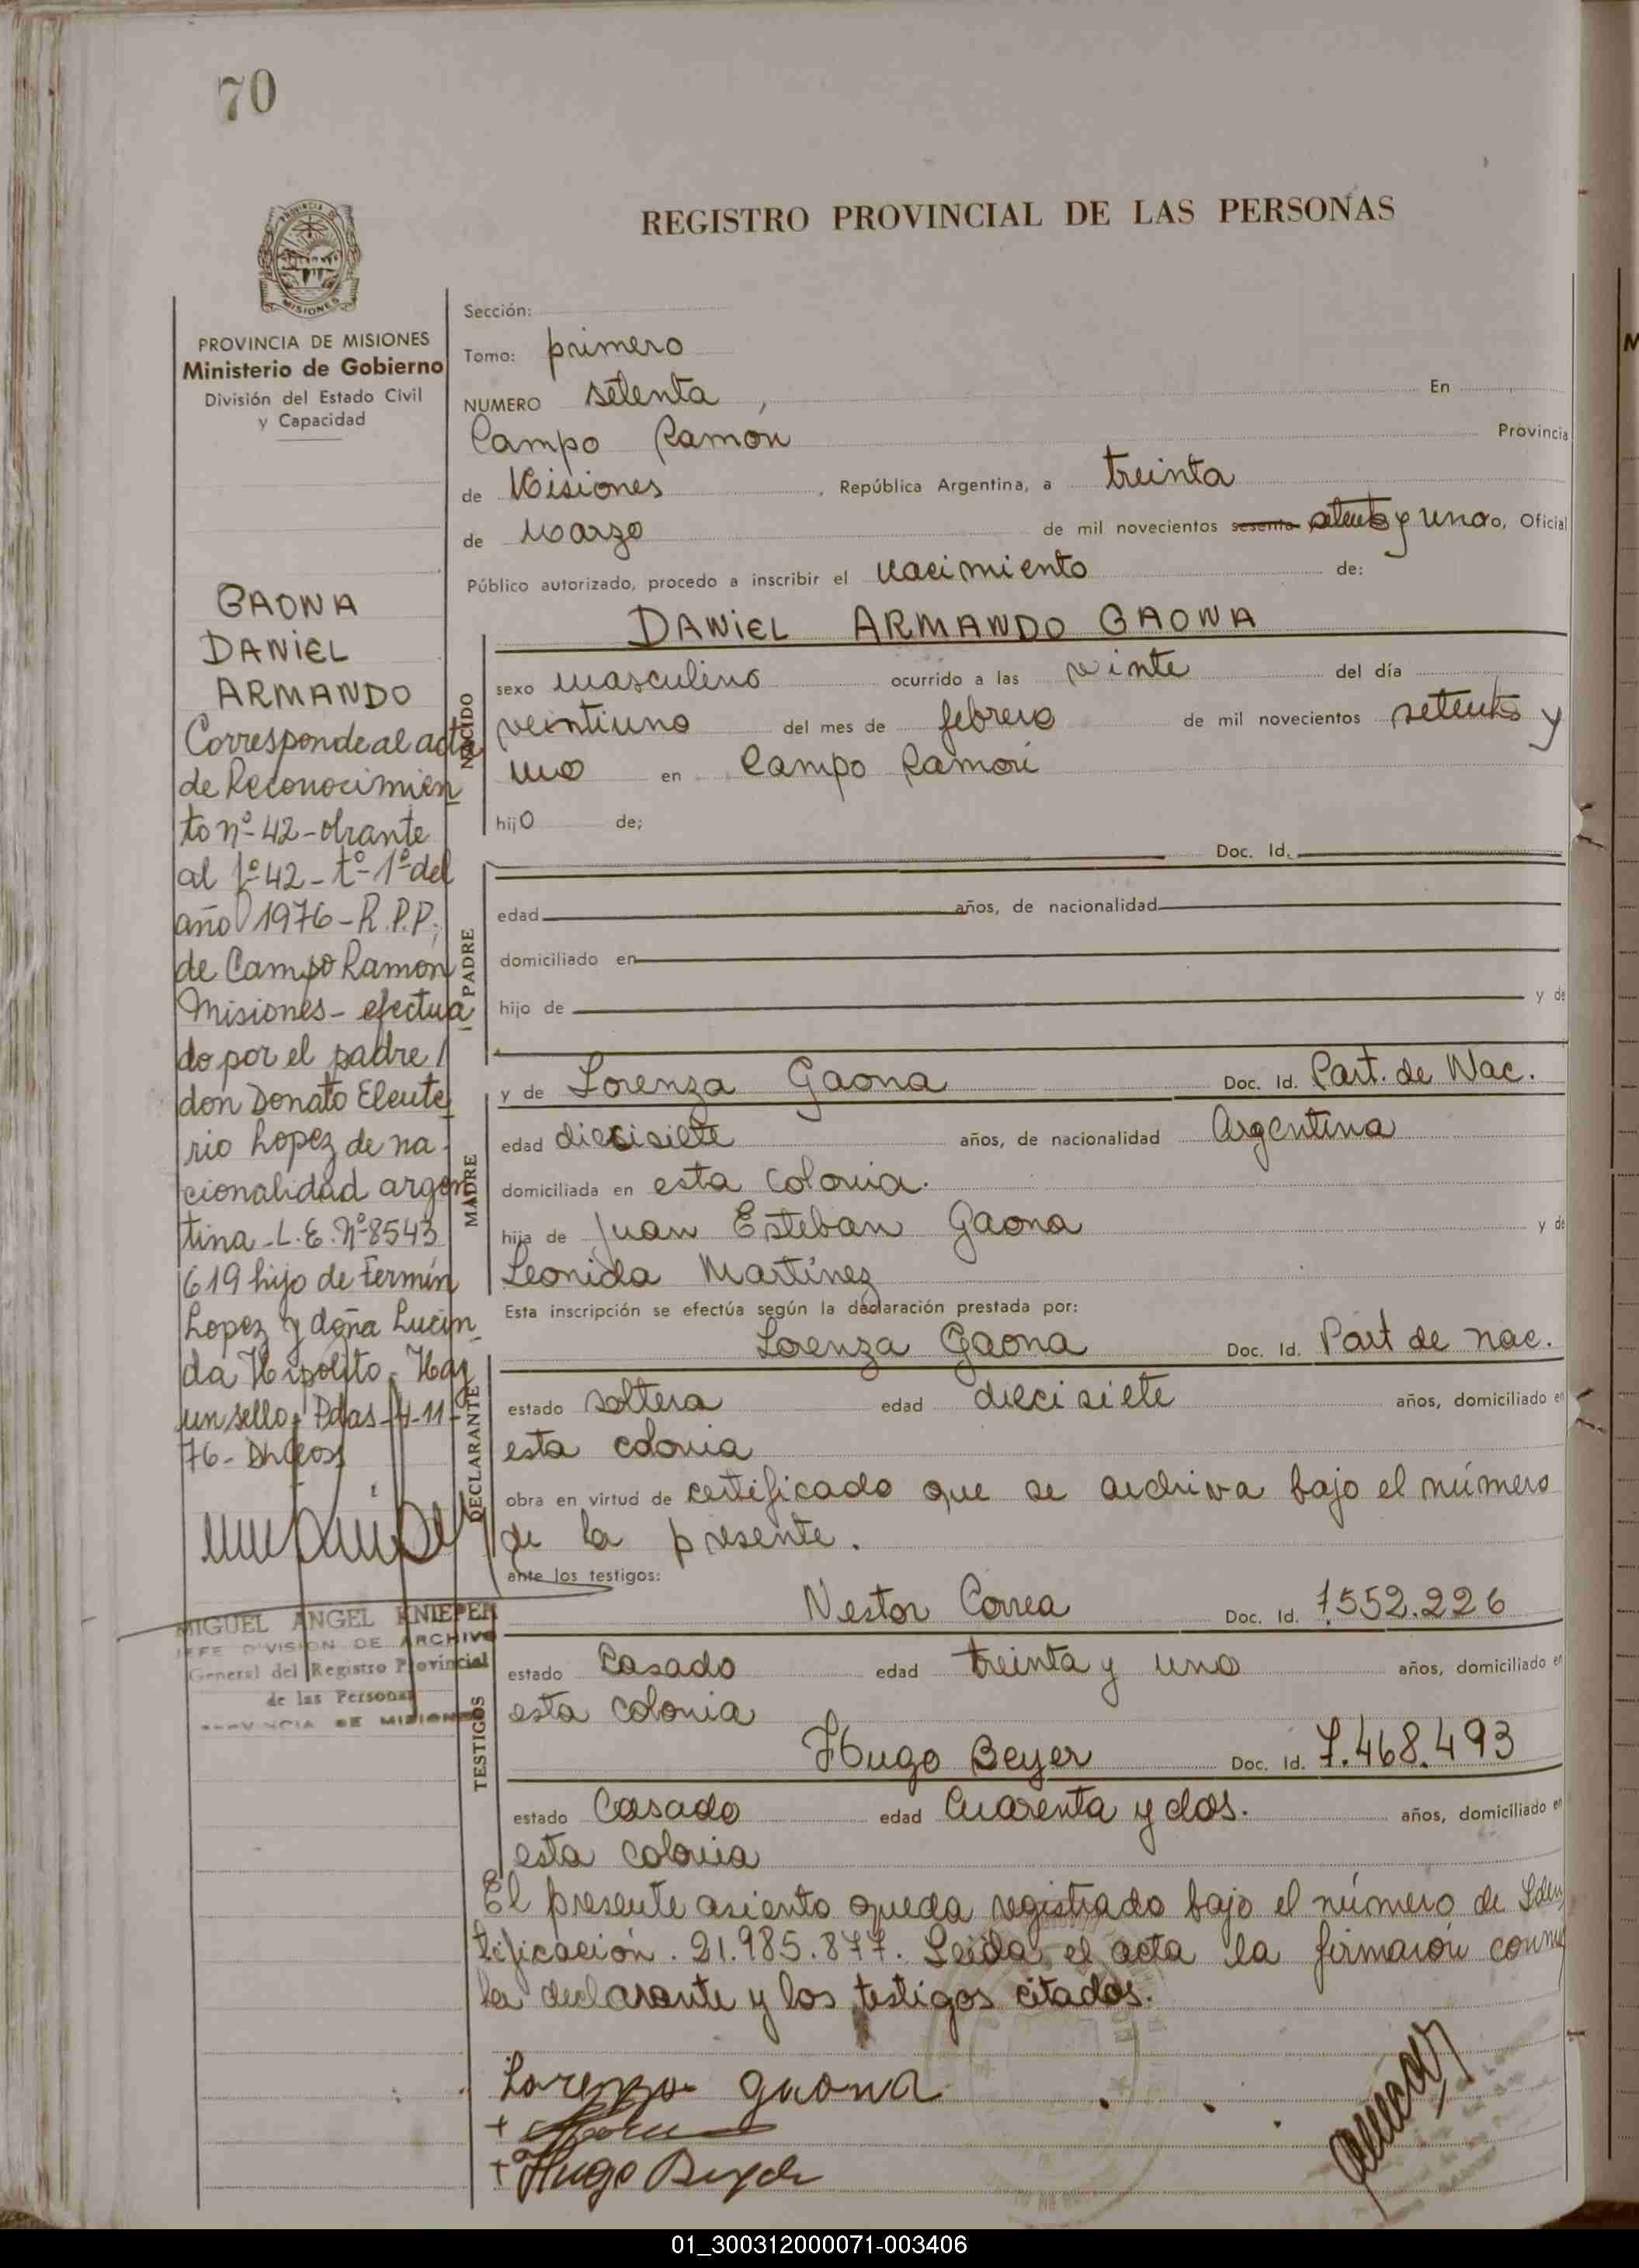 70
REGISTRO PROVINCIAL DE LAS PERSONAS
PROVINCIA DE MISIONES
Ministerio de Gobierno
División del Estado Civil
y Capacidad
GAONA
DANIEL
ARMANDO
Corresponde al acta
de Reconocimien
to nº 42 - obrante
al fº 42 - tº 1º del
año 1976 - R.P.P.
de Campo Ramon
Misiones - efectua
do por el padre
don Donato Eleute
rio Lopez de na
cionalidad argen
tina - L.E. Nº 8543
619 hijo de Fermín
Lopez y doña Lucin
da Hipolito - Hay
un sello - Pdas - 4-11-
76 -
MIGUEL ANGEL KNIEPER
JEFE DIVISION DE ARCHIVO
General del Registro Provincial
de las Personas
PROVINCIA DE MISIONES
Sección:
Tomo: primero
NUMERO setenta , En
Campo Ramón Provincia
de Misiones , República Argentina, a treinta
de Marzo de mil novecientos sesenta setenta y uno o, Oficial
Público autorizado, procedo a inscribir el nacimiento de:
DANIEL ARMANDO GAONA
NACIDO
sexo masculino ocurrido a las veinte del día
veintiuno del mes de febrero de mil novecientos setenta y
uno en Campo Ramón
hijo de;
PADRE
Doc. Id.
edad años, de nacionalidad
domiciliado en
hijo de y de
MADRE
y de Lorenza Gaona Doc. Id. Part. de Nac.
edad diecisiete años, de nacionalidad Argentina
domiciliada en esta colonia.
hija de Juan Esteban Gaona y de
Leonida Martínez
Esta inscripción se efectúa según la declaración prestada por:
DECLARANTE
Lorenza Gaona Doc. Id. Part de nac.
estado soltera edad diecisiete años, domiciliado en
esta colonia
obra en virtud de certificado que se archiva bajo el número
de la presente.
ante los testigos:
TESTIGOS
Nestor Correa Doc. Id. 7552.226
estado Casado edad treinta y uno años, domiciliado en
esta colonia
Hugo Beyer Doc. Id. 7.468.493
estado Casado edad Cuarenta y dos. años, domiciliado en
esta colonia
El presente asiento queda registrado bajo el número de Iden
tificación. 21.985.877. Leida el acta la firmarón conmigo
la declarante y los testigos citados.
Lorenza gaona
Hugo Beyer
01_300312000071-003406